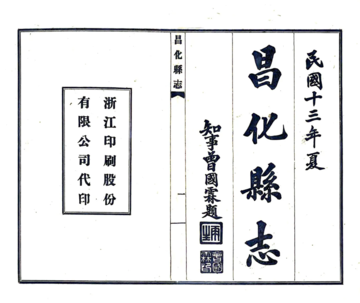 民國十三年夏
昌化縣志
知事曾國霖題
昌化縣志
一
浙江印刷股份
有限公司代印